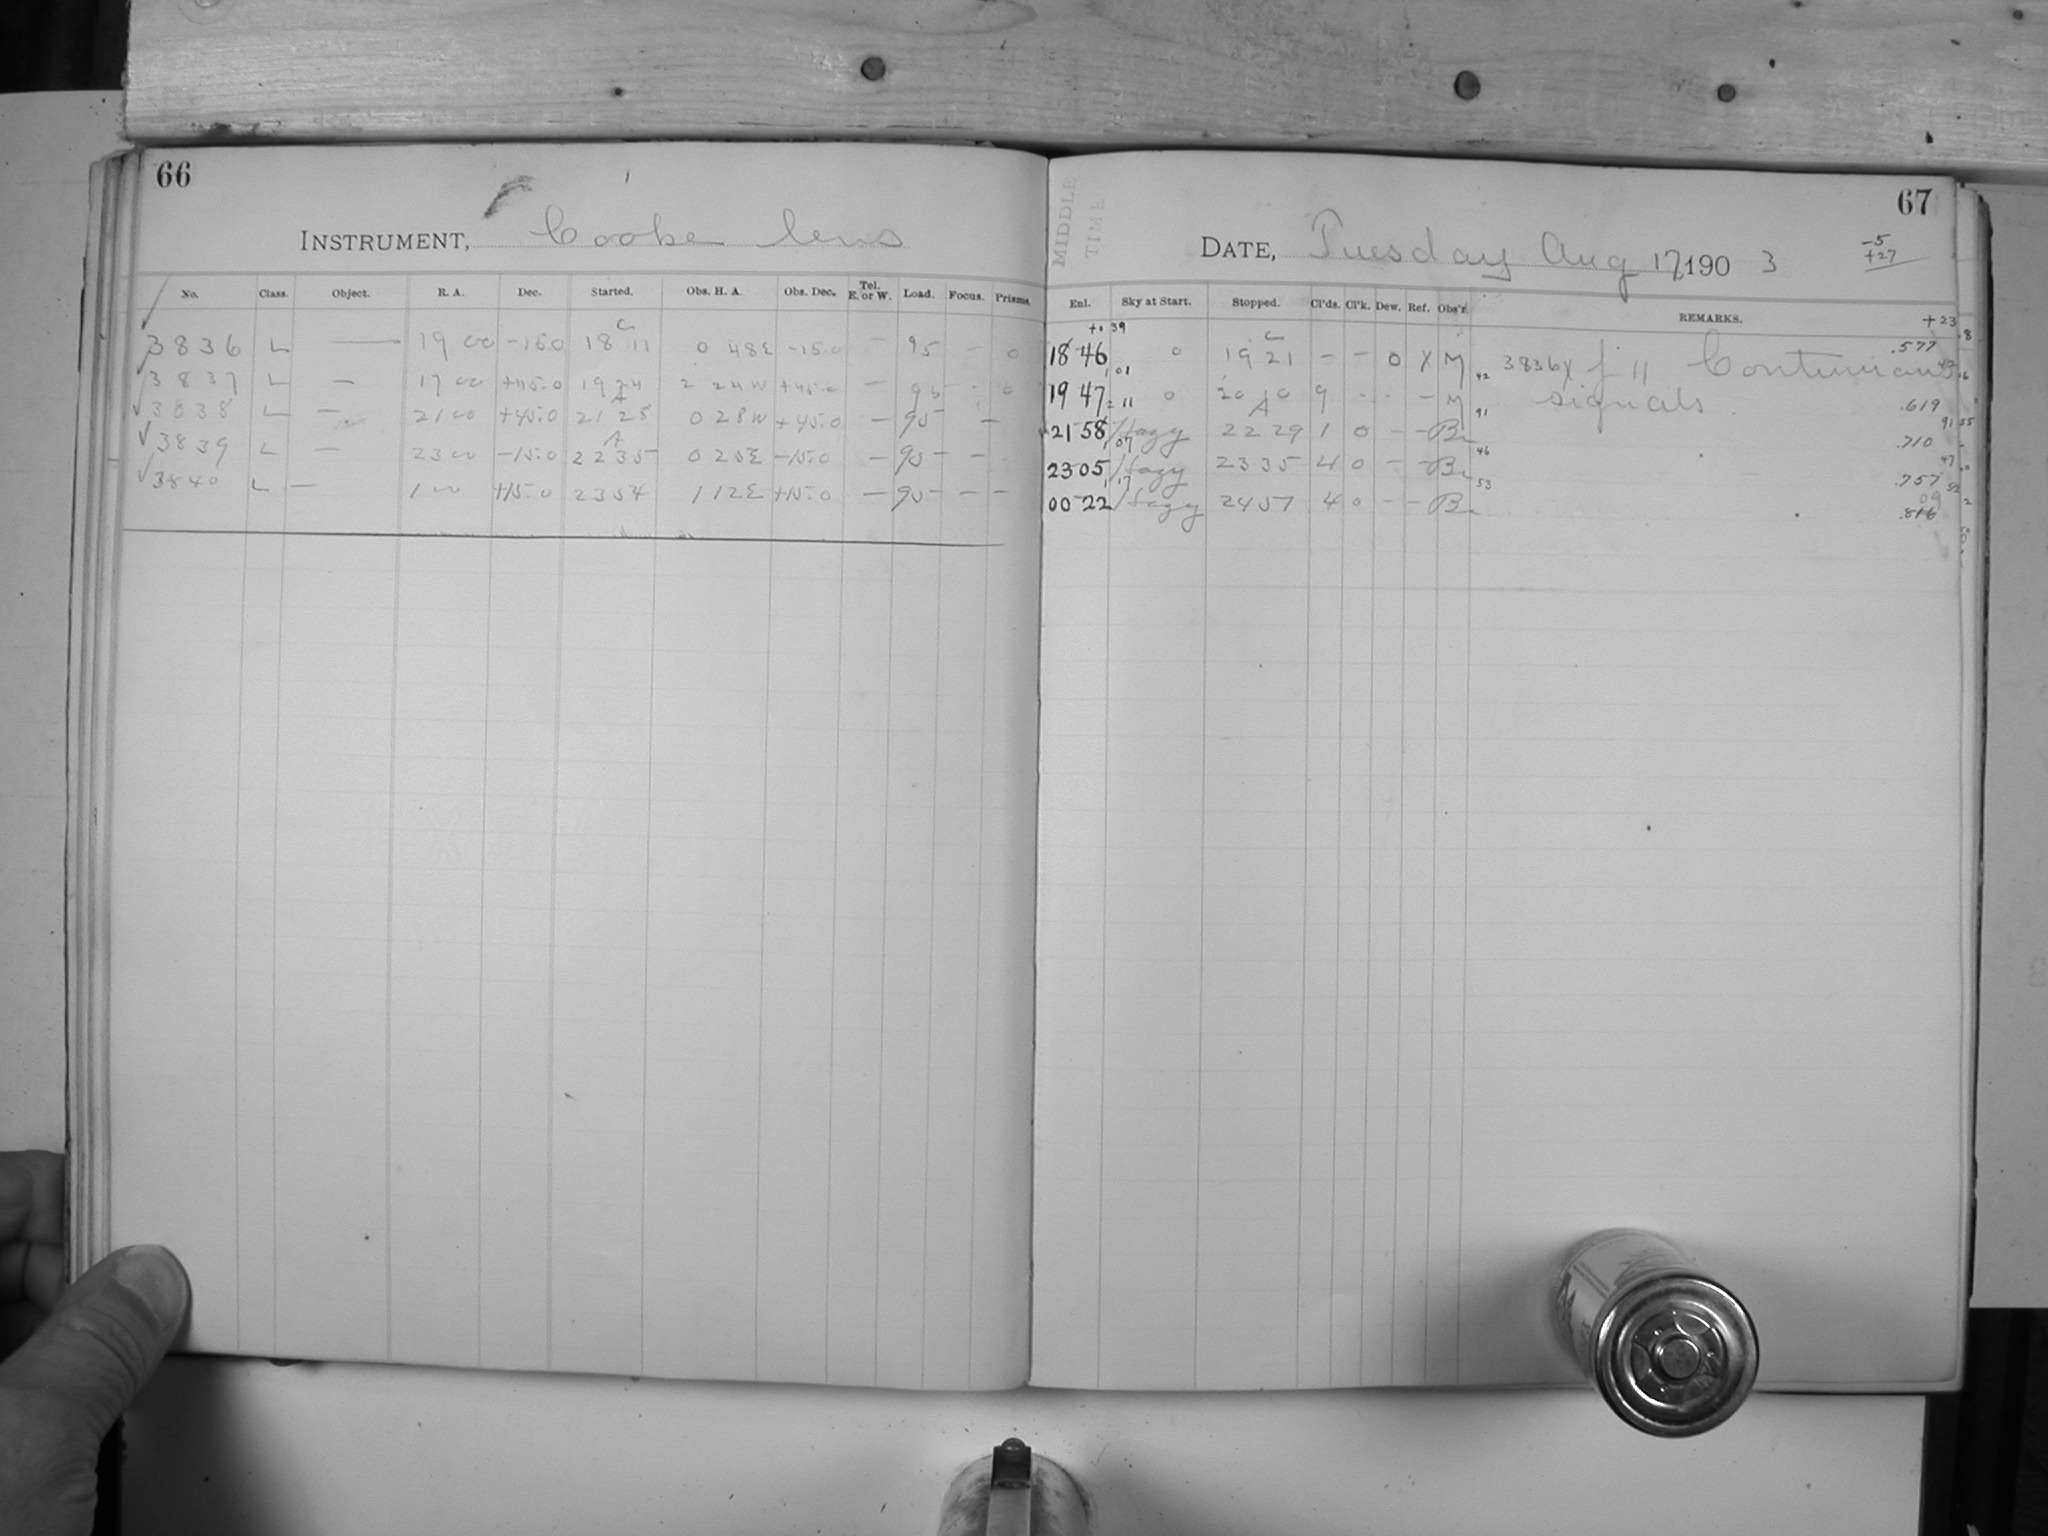 66
INSTRUMENT, Cooke lens
No. Class. Object. R. A. Dec. Started. Obs. H. A. Obs. Dec. Tel. E. or W. Load. Focus. Prisms.
C
3836 L — 19 00 -15.0 18 11 0 48E -15.0 — 95 - 0
3837 L — 17 00 +45.0 19 24 2 24W +45.0 — 95 - 0
A
3838 L — 21 00 +45.0 21 28 0 28W +45.0 — 95 —
A
3839 L — 23 00 -15.0 22 35 0 25E -15.0 — 95 -
3840 L — 1 00 +15.0 23 54 1 12E +15.0 — 95 - -
67
MIDDLE
TIME
DATE, Tuesday Aug 17, 1903
-5
+27
Enl. Sky at Start. Stopped. Cl'ds. Cl'k. Dew. Ref. Obs'r. REMARKS.
+23
39
C
18 46 0 19 21 - - 0 X M 3836X f 11 Continuous
.577
1,01
42
19 47 0 20 10 9 - - - M signals
2 11
91
.619
A
21 58 Hazy 22 29 1 0 - - Br
1 07
46
.710
23 05 Hazy 23 35 4 0 - - Br
1 17
53
.757
00 22 Hazy 24 57 4 0 - - Br
09
.816